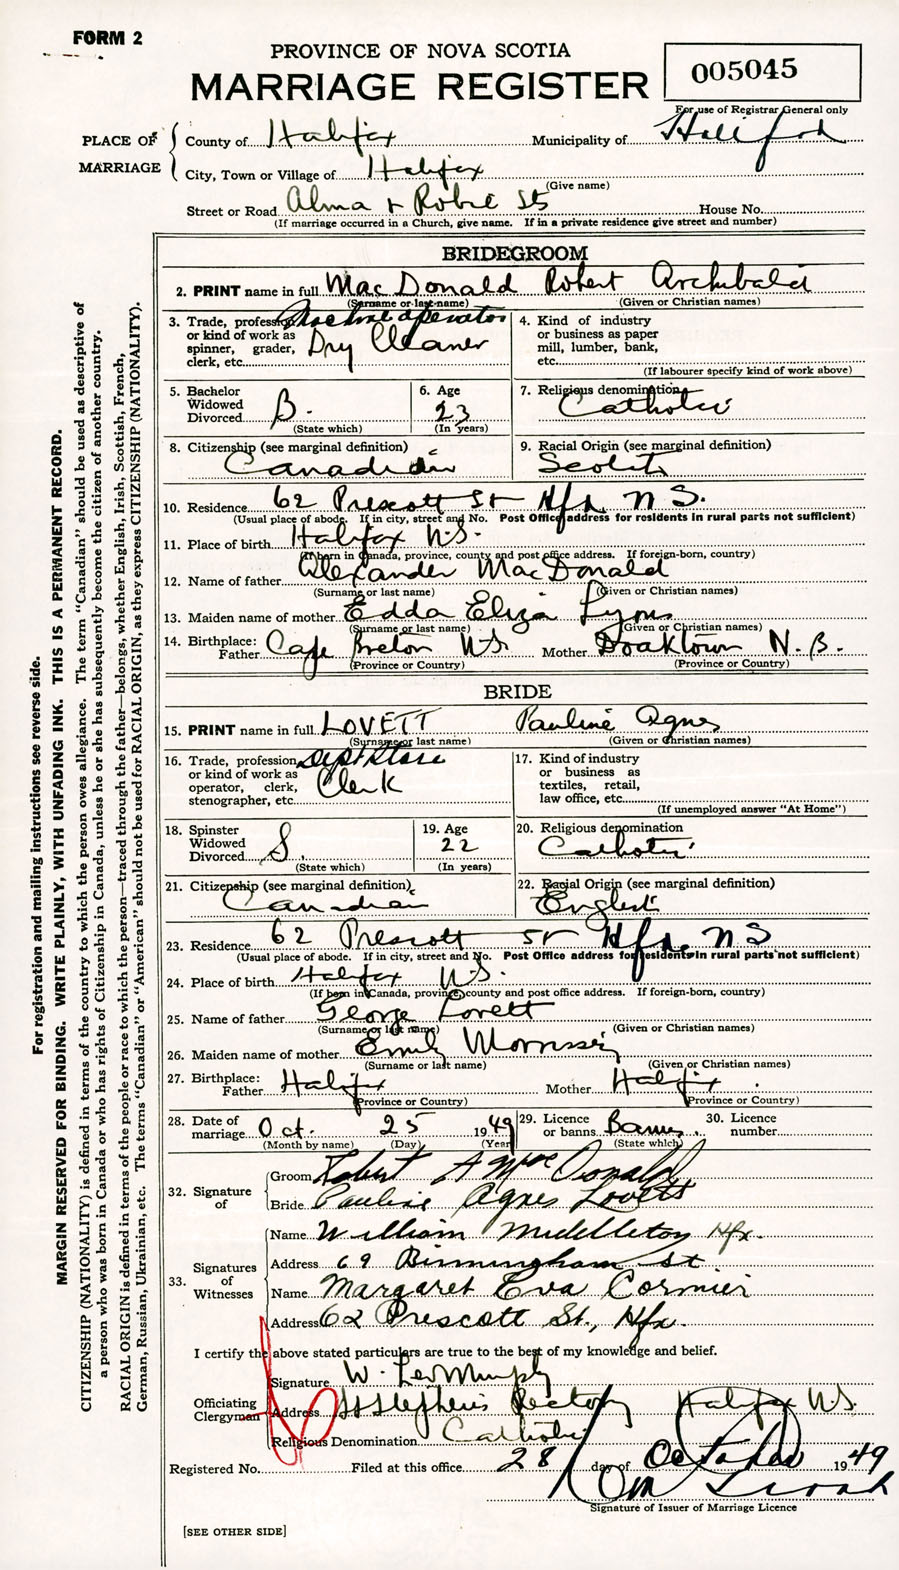 FORM 2
PROVINCE OF NOVA SCOTIA
MARRIAGE REGISTER
005045
For use of Registrar General only
PLACE OF MARRIAGE
County of Halifax Municipality of Halifax
City, Town or Village of Halifax
(Give name)
Street or Road Alma & Robie Sts House No.
(If marriage occurred in a Church, give name. If in a private residence give street and number)
BRIDEGROOM
2. PRINT name in full MacDonald Robert Archibald
(Surname or last name) (Given or Christian names)
3. Trade, profession or kind of work as spinner, grader, clerk, etc. Machine operator Dry Cleaner
4. Kind of industry or business as paper mill, lumber, bank, etc.
(If labourer specify kind of work above)
5. Bachelor Widowed Divorced B.
(State which)
6. Age 23
(In years)
7. Religious denomination Catholic
8. Citizenship (see marginal definition) Canadian
9. Racial Origin (see marginal definition) Scotch
10. Residence 62 Prescott St Hfx N S.
(Usual place of abode. If in city, street and No. Post Office address for residents in rural parts not sufficient)
11. Place of birth Halifax N.S.
(If born in Canada, province, county and post office address. If foreign-born, country)
12. Name of father Alexander MacDonald
(Surname or last name) (Given or Christian names)
13. Maiden name of mother Edda Eliza Lyons
(Surname or last name) (Given or Christian names)
14. Birthplace: Father Cape Breton NS Mother Doaktown N.B.
(Province or Country) (Province or Country)
BRIDE
15. PRINT name in full LOVETT Pauline Agnes
(Surname or last name) (Given or Christian names)
16. Trade, profession or kind of work as operator, clerk, stenographer, etc. Dept Store Clerk
17. Kind of industry or business as textiles, retail, law office, etc.
(If unemployed answer "At Home")
18. Spinster Widowed Divorced S.
(State which)
19. Age 22
(In years)
20. Religious denomination Catholic
21. Citizenship (see marginal definition) Canadian
22. Racial Origin (see marginal definition) English
23. Residence 62 Prescott St Hfx. N S
(Usual place of abode. If in city, street and No. Post Office address for residents in rural parts not sufficient)
24. Place of birth Halifax N.S.
(If born in Canada, province, county and post office address. If foreign-born, country)
25. Name of father George Lovett
(Surname or last name) (Given or Christian names)
26. Maiden name of mother Emily Morrissey
(Surname or last name) (Given or Christian names)
27. Birthplace: Father Halifax Mother Halifax
(Province or Country) (Province or Country)
28. Date of marriage Oct. 25 1949
(Month by name) (Day) (Year)
29. Licence or banns Banns
(State which)
30. Licence number
32. Signature of
Groom Robert A MacDonald
Bride Pauline Agnes Lovett
33. Signatures of Witnesses
Name William Middleton Hfx.
Address 69 Birmingham St.
Name Margaret Eva Cormier
Address 62 Prescott St., Hfx.
I certify the above stated particulars are true to the best of my knowledge and belief.
Officiating Clergyman
Signature W. Leo Murphy
Address St Stephen's Rectory Halifax N.S.
Religious Denomination Catholic
Registered No. Filed at this office 28 day of October 1949
Signature of Issuer of Marriage Licence
[SEE OTHER SIDE]
For registration and mailing instructions see reverse side.
MARGIN RESERVED FOR BINDING. WRITE PLAINLY, WITH UNFADING INK. THIS IS A PERMANENT RECORD.
CITIZENSHIP (NATIONALITY) is defined in terms of the country to which the person owes allegiance. The term "Canadian" should be used as descriptive of
a person who was born in Canada or who has rights of Citizenship in Canada, unless he or she has subsequently become the citizen of another country.
RACIAL ORIGIN is defined in terms of the people or race to which the person—traced through the father—belongs, whether English, Irish, Scottish, French,
German, Russian, Ukrainian, etc. The terms "Canadian" or "American" should not be used for RACIAL ORIGIN, as they express CITIZENSHIP (NATIONALITY).